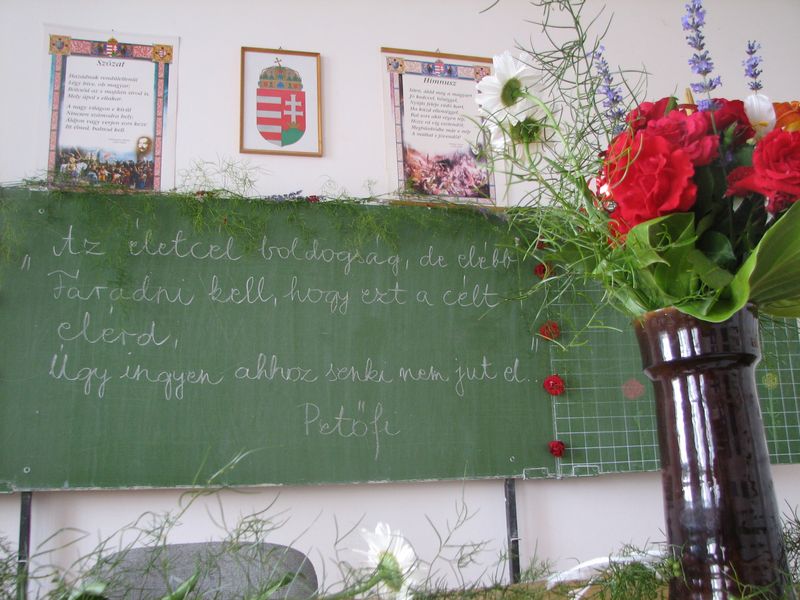 Szózat
Hazádnak rendületlenűl
Légy híve, oh magyar;
Bölcsőd az s majdan sírod is,
Mely ápol s eltakar.
A nagy világon e kívűl
Nincsen számodra hely;
Áldjon vagy verjen sors keze:
Itt élned, halnod kell.
Himnusz
Isten, áldd meg a magyart
Jó kedvvel, bőséggel,
Nyújts feléje védő kart,
Ha küzd ellenséggel;
Bal sors akit régen tép,
Hozz rá víg esztendőt,
Megbűnhődte már e nép
A multat s jövendőt!
„Az életcél boldogság, de elébb
Fáradni kell, hogy ezt a célt
elérd,
Úgy ingyen ahhoz senki nem jut el..."
Petőfi